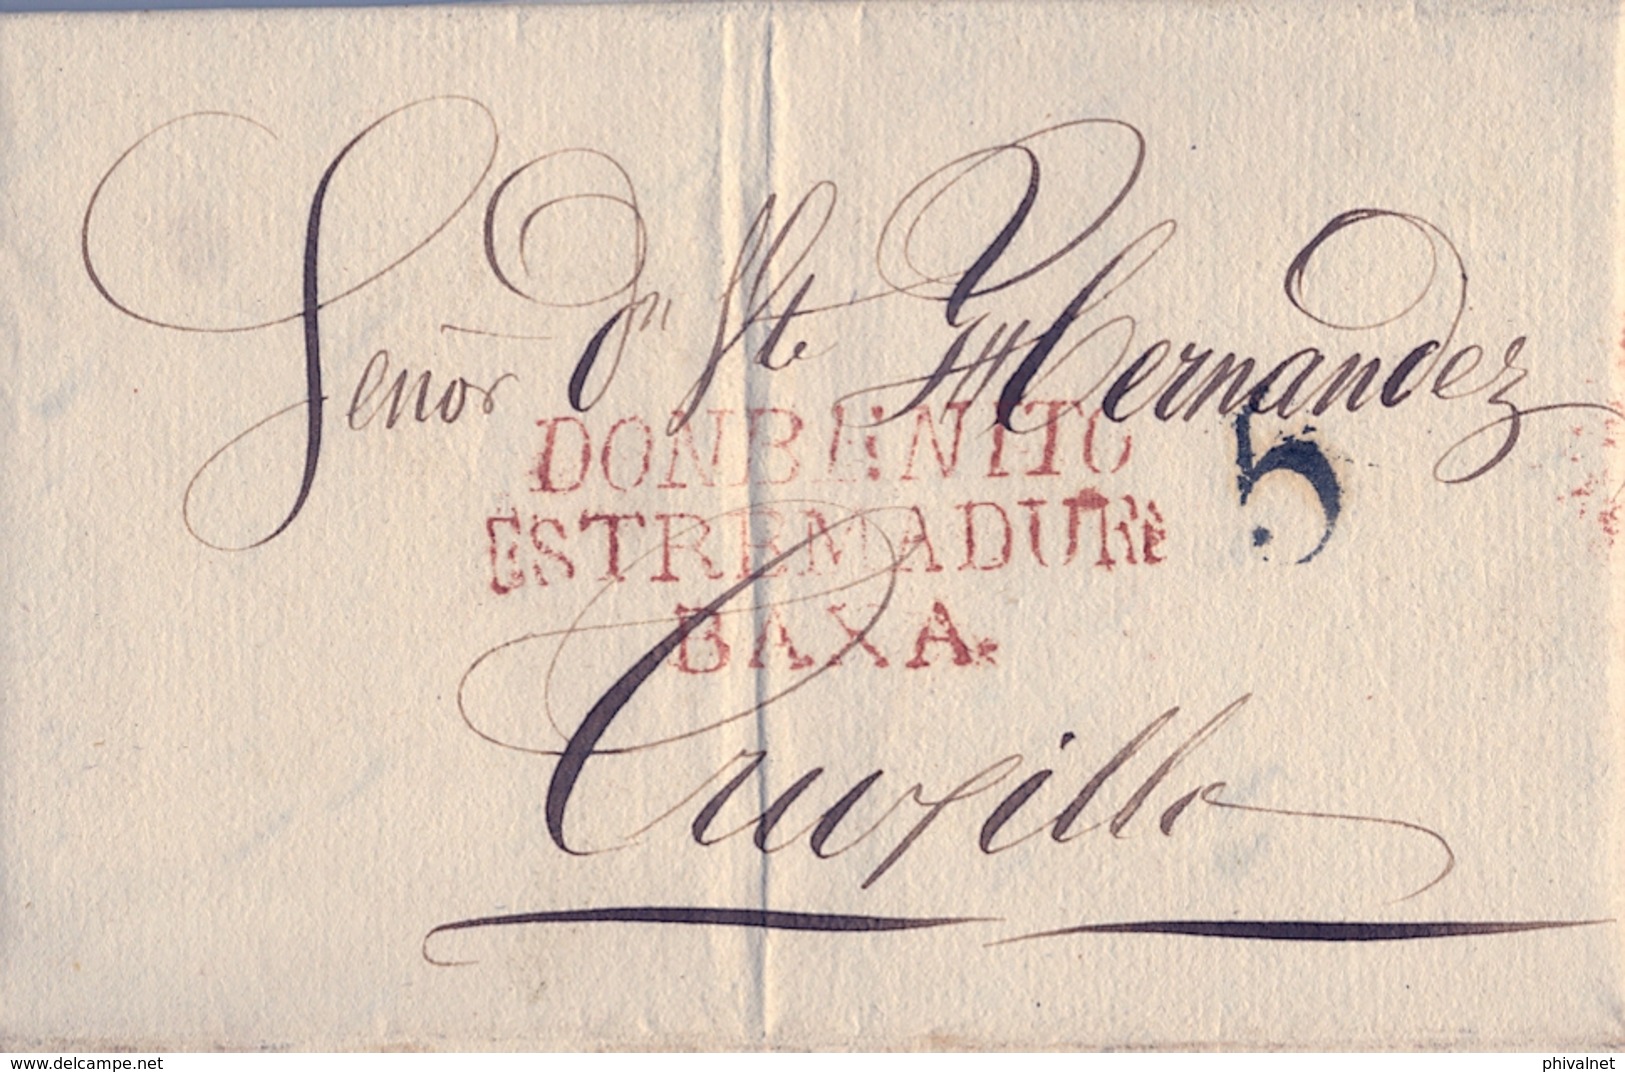 Señor Dn Hernandez
DONBENITO
5
ESTREMADURA
BAXA.
Truxillo
www.delcampe.net
phivalnet